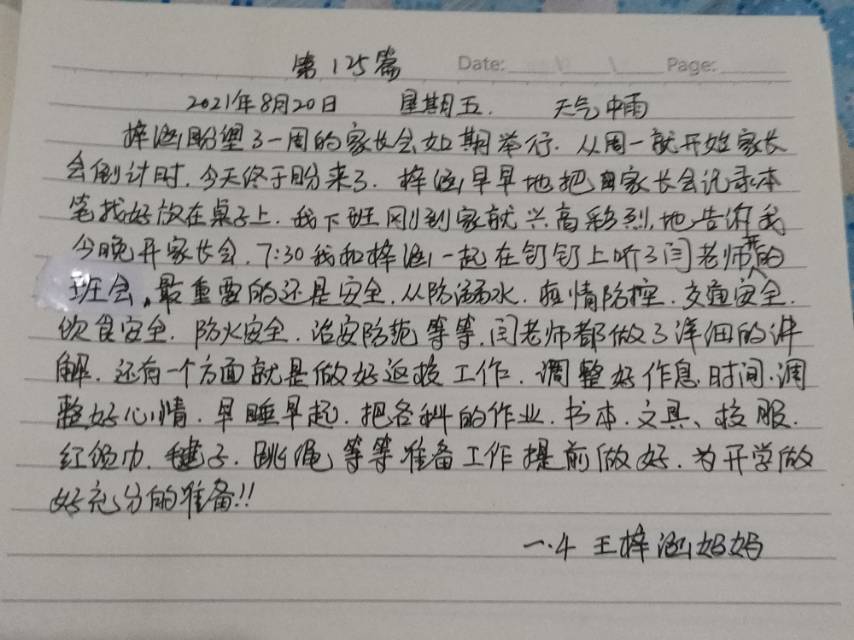 第125篇 Date: Page:
2021年8月20日 星期五. 天气中雨
梓涵盼望了一周的家长会如期举行. 从周一就开始家长
会倒计时, 今天终于盼来了. 梓涵早早地把家长会记录本
笔找好放在桌子上. 我下班刚到家就兴高彩烈地告诉我
今晚开家长会. 7:30我和梓涵一起在钉钉上听了闫老师开的
班会, 最重要的还是安全, 从防溺水. 疫情防控. 交通安全.
饮食安全. 防火安全. 治安防范等等, 闫老师都做了详细的讲
解. 还有一个方面就是做好返校工作. 调整好作息时间. 调
整好心情. 早睡早起. 把各科的作业. 书本. 文具、校服.
红领巾. 毽子. 跳绳等等准备工作提前做好. 为开学做
好充分的准备!!
一.4 王梓涵妈妈